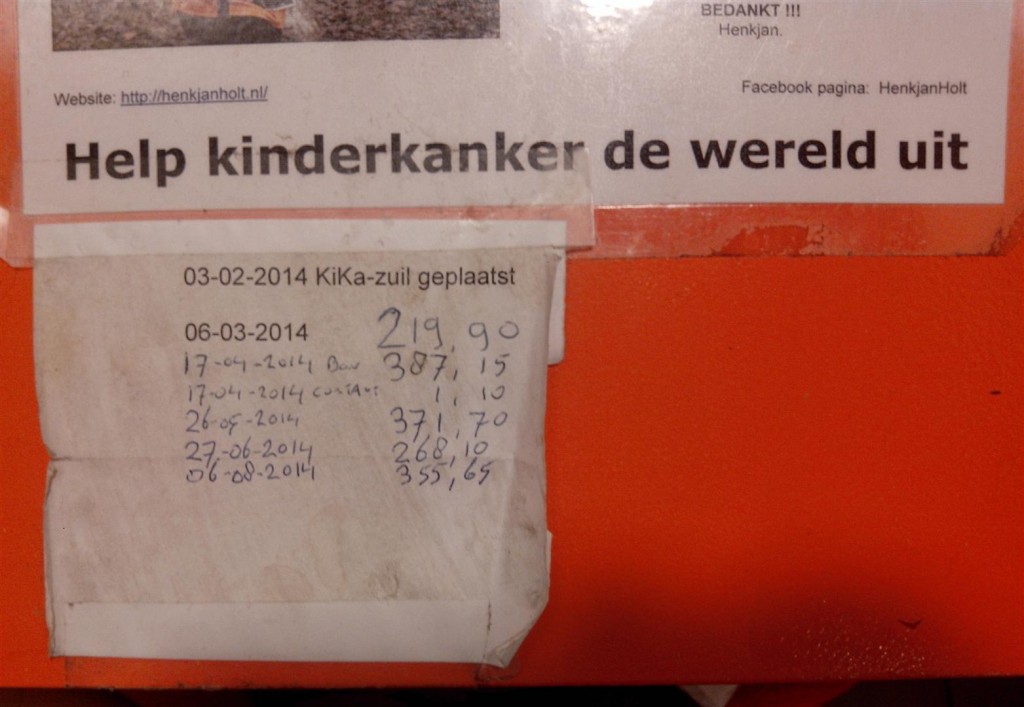 BEDANKT !!!
Henkjan.
Website: http://henkjanholt.nl/
Facebook pagina: HenkjanHolt
Help kinderkanker de wereld uit
03-02-2014 KiKa-zuil geplaatst
06-03-2014 219,90
17-04-2014 387,15
17-04-2014 1,10
26-05-2014 371,70
27-06-2014 268,10
06-08-2014 355,65